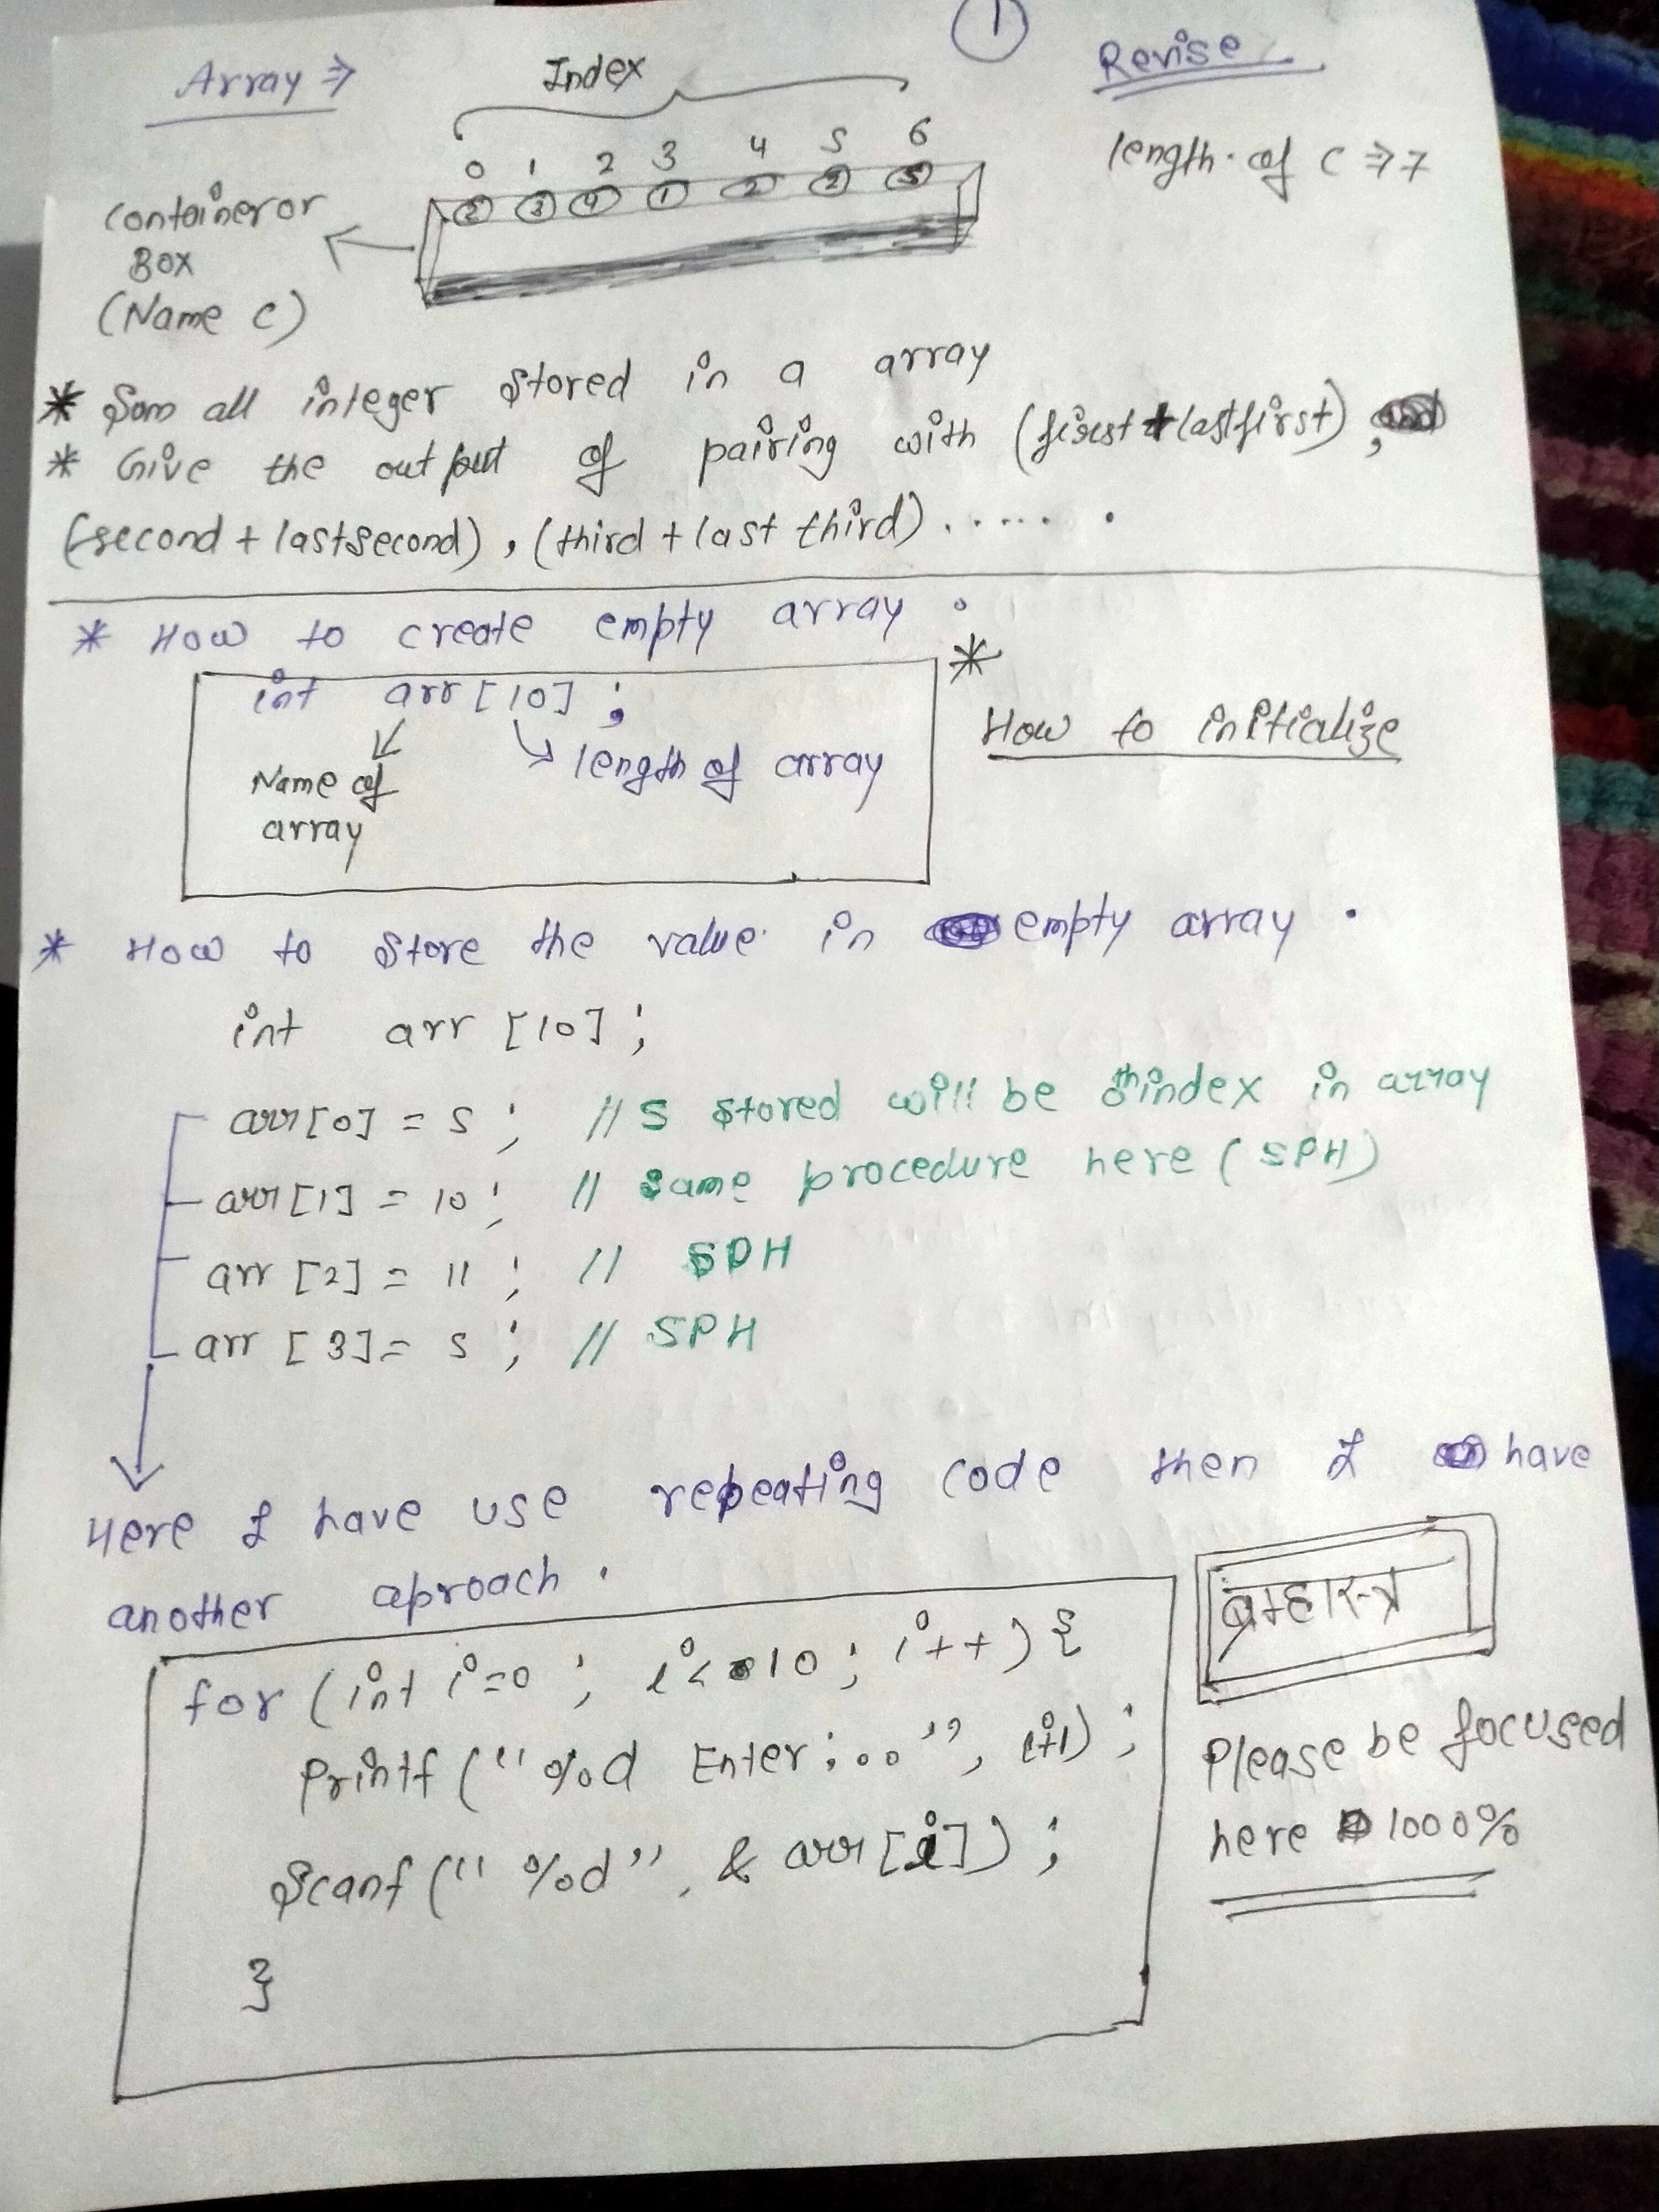 1
Array ⇒
Index
Revise
0 1 2 3 4 5 6
length of C ⇒ 7
2 3 9 1 2 2 5
Container or
Box
(Name C)
* Sum all integer stored in a array
* Give the output of pairing with (first + lastfirst),
(second + lastsecond), (third + last third) . . . . . .
* How to create empty array .
int arr [10] ;
Name of
array
length of array
*
How to initialize
* How to store the value in empty array .
int arr [10] ;
arr[0] = 5 ; // 5 stored will be 0th index in array
arr[1] = 10 ; // same procedure here (SPH)
arr [2] = 11 ; // SPH
arr [3] = 5 ; // SPH
Here I have use repeating code then I have
another aproach .
for (int i=0 ; i<10 ; i++) {
printf ("%d Enter : . . ", i+1) ;
Scanf ("%d", & arr [i]) ;
}
ब्रम्हास्त्र
Please be focused
here 1000%